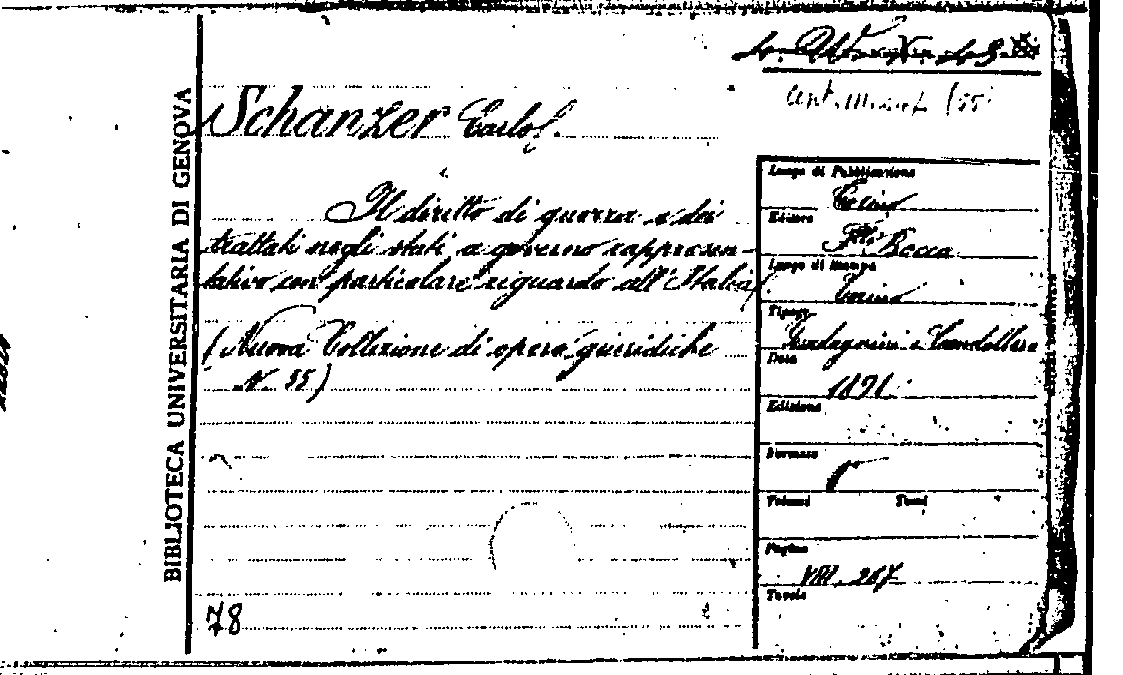 BIBLIOTECA UNIVERSITARIA DI GENOVA
Schanzer Carlo.
Il diritto di guerra e dei
trattati negli stati a governo rappresen-
tativo con particolare riguardo all'Italia
(Nuova Collezione di opere giuridiche
N. 55)
78
Luogo di Pubblicazione
Torino
Editore
F.lli Bocca
Luogo di stampa
Torino
Tipogr.
Data
1891.
Edizione
Formato
Volumi Tomi
Pagine
VIII. 267
Tavole